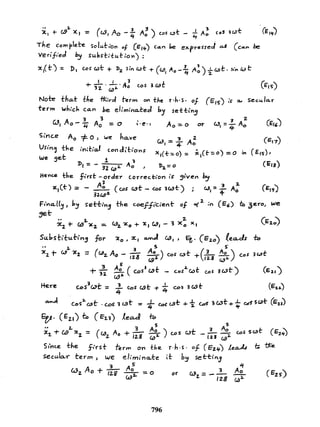 ẍ₁ + ω² x₁ = (ω₁ A₀ − 3/4 A₀³) cos ωt − 1/4 A₀³ cos 3ωt (E14)
The complete solution of (E14) can be expressed as (can be
verified by substitution) :
x₁(t) = D₁ cos ωt + D₂ sin ωt + (ω₁ A₀ − 3/4 A₀³) 1/2ω t · sin ωt
+ 1/32 · 1/ω² A₀³ cos 3ωt (E15)
Note that the third term on the r·h·s· of (E15) is a secular
term which can be eliminated by setting
ω₁ A₀ − 3/4 A₀³ = 0 i·e·, A₀ = 0 or ω₁ = 3/4 A₀² (E16)
Since A₀ ≠ 0, we have
ω₁ = 3/4 A₀² (E17)
Using the initial conditions x₁(t=0) = ẋ₁(t=0) = 0 in (E15),
we get
D₁ = − 1/32 ω² A₀³ , D₂ = 0 (E18)
Hence the first-order correction is given by
x₁(t) = − A₀³/32ω² (cos ωt − cos 3ωt) ; ω₁ = 3/4 A₀² (E19)
Finally, by setting the coefficient of α² in (E8) to zero, we
get
ẍ₂ + ω² x₂ = ω₂ x₀ + x₁ ω₁ − 3 x₀² x₁ (E20)
Substituting for x₀, x₁ and ω₁, Eq. (E20) leads to
ẍ₂ + ω² x₂ = (ω₂ A₀ − 3/128 A₀⁵/ω²) cos ωt + (3/128 A₀⁵/ω²) cos 3ωt
+ 3/32 A₀⁵/ω² (cos³ ωt − cos² ωt cos 3ωt) (E21)
Here cos³ ωt = 3/4 cos ωt + 1/4 cos 3ωt (E22)
and cos² ωt · cos 3ωt = 1/4 cos ωt + 1/2 cos 3ωt + 1/4 cos 5ωt (E23)
Eqs. (E21) to (E23) lead to
ẍ₂ + ω² x₂ = (ω₂ A₀ + 3/128 A₀⁵/ω²) cos ωt − 3/128 A₀⁵/ω² cos 5ωt (E24)
Since the first term on the r·h·s· of (E24) leads to the
secular term, we eliminate it by setting
ω₂ A₀ + 3/128 A₀⁵/ω² = 0 or ω₂ = − 3/128 A₀⁴/ω² (E25)
796